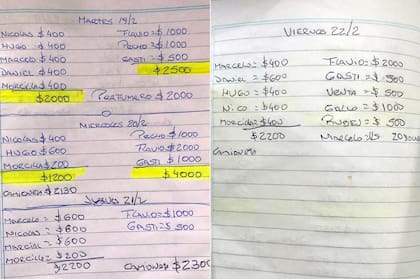 MARTES 19/2
NICOLAS $400 FLAVIO = $1000
HUGO $400 PECHO = $1000
MARCELO $400 GASTI = $500
DANIEL $400 $2500
MORCILLA $400
$2000 PERFUMERO $2000
MIERCOLES 20/2
NICOLAS $400 PECHO $1000
HUGO $600 FLAVIO $2000
MORCILLA $200 GASTI $1000
$1200 $4000
CAMIONETA $2130
JUEVES 21/2
MARCELO = $600 FLAVIO = $1000
NICOLAS = $800 GASTI = $500
MARCELO = $600
MORCILLA = $200
$2200 CAMIONETA $2300
VIERNES 22/2
MARCELO = $400 FLAVIO = $2000
DANIEL = $600 GASTI = $500
HUGO = $400 VENTA = $500
NICO = $400 GALLO = $1000
MORCILLA = $400 RUBEN = $500
$2200 MARCELO
CAMIONETA